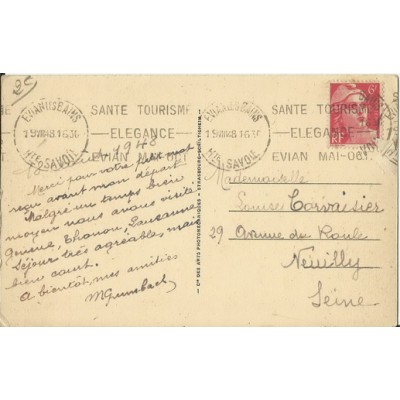 25
EVIAN LES BAINS
19 VIII 48 16 30
HTE SAVOIE
SANTE TOURISME
ELEGANCE
EVIAN MAI-OCT.
6F
RF
1948
Merci pour votre petit mot
reçu avant mon départ
Malgré un temps bien
moyen nous avons visité
Genève, Thonon, Lausanne
Séjour très agréable, mais
bien court.
A bientôt, mes amitiés
MGrumbach
CIE DES ARTS PHOTOMÉCANIQUES - STRASBOURG-SCHILTIGHEIM
Mademoiselle
Louise
29 Avenue du Roule
Neuilly
Seine